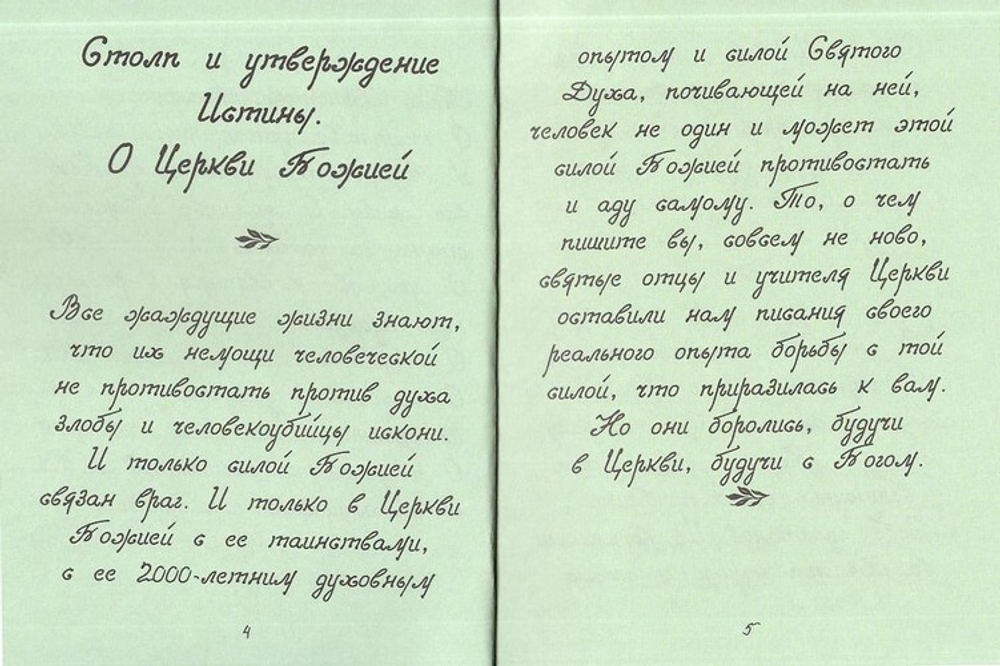 Столп и утверждение
Истины.
О Церкви Божией
Все жаждущие жизни знают,
что их немощи человеческой
не противостать против духа
злобы и человекоубийцы искони.
И только силой Божией
связан враг. И только в Церкви
Божией с ее таинствами,
с ее 2000-летним духовным
4
опытом и силой Святого
Духа, почивающей на ней,
человек не один и может этой
силой Божией противостать
и аду самому. То, о чем
пишите вы, совсем не ново,
святые отцы и учителя Церкви
оставили нам писания своего
реального опыта борьбы с той
силой, что приразилась к вам.
Но они боролись, будучи
в Церкви, будучи с Богом.
5